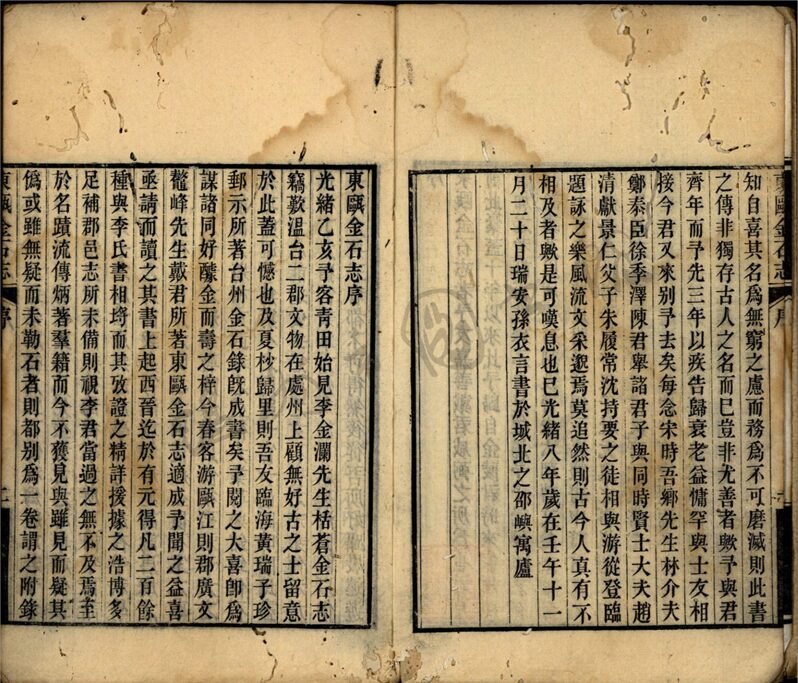 東甌金石志
序
知自喜其名為無窮之慮而務為不可磨滅則此書
之傳非獨存古人之名而已豈非尤善者歟予與君
齊年而予先三年以疾告歸衰老益慵罕與士友相
接今君又來别予去矣每念宋時吾鄉先生林介夫
鄭泰臣徐季澤陳君舉諸君子與同時賢士大夫趙
清獻景仁父子朱履常沈持要之徒相與游從登臨
題詠之樂風流文采邈焉莫追然則古今人真有不
相及者歟是可嘆息也已光緒八年歲在壬午十一
月二十日瑞安孫衣言書於城北之邵嶼寓廬
東甌金石志序
光緒乙亥予客青田始見李金瀾先生栝蒼金石志
竊歎温台二郡文物在處州上顧無好古之士留意
於此蓋可憾也及夏杪歸里則吾友臨海黃瑞子珍
郵示所著台州金石錄旣成書矣予閱之大喜卽為
謀諸同好醵金而壽之梓今春客游甌江則郡廣文
鼇峰先生戴君所著東甌金石志適成予聞之益喜
亟請而讀之其書上起西晉迄於有元得凡二百餘
種與李氏書相埒而其攷證之精詳援據之浩博多
足補郡邑志所未備則視李君當過之無不及焉至
於名蹟流傳炳著羣籍而今不獲見與雖見而疑其
僞或雖無疑而未勒石者則都别為一卷謂之附錄
東甌金石志
序
二